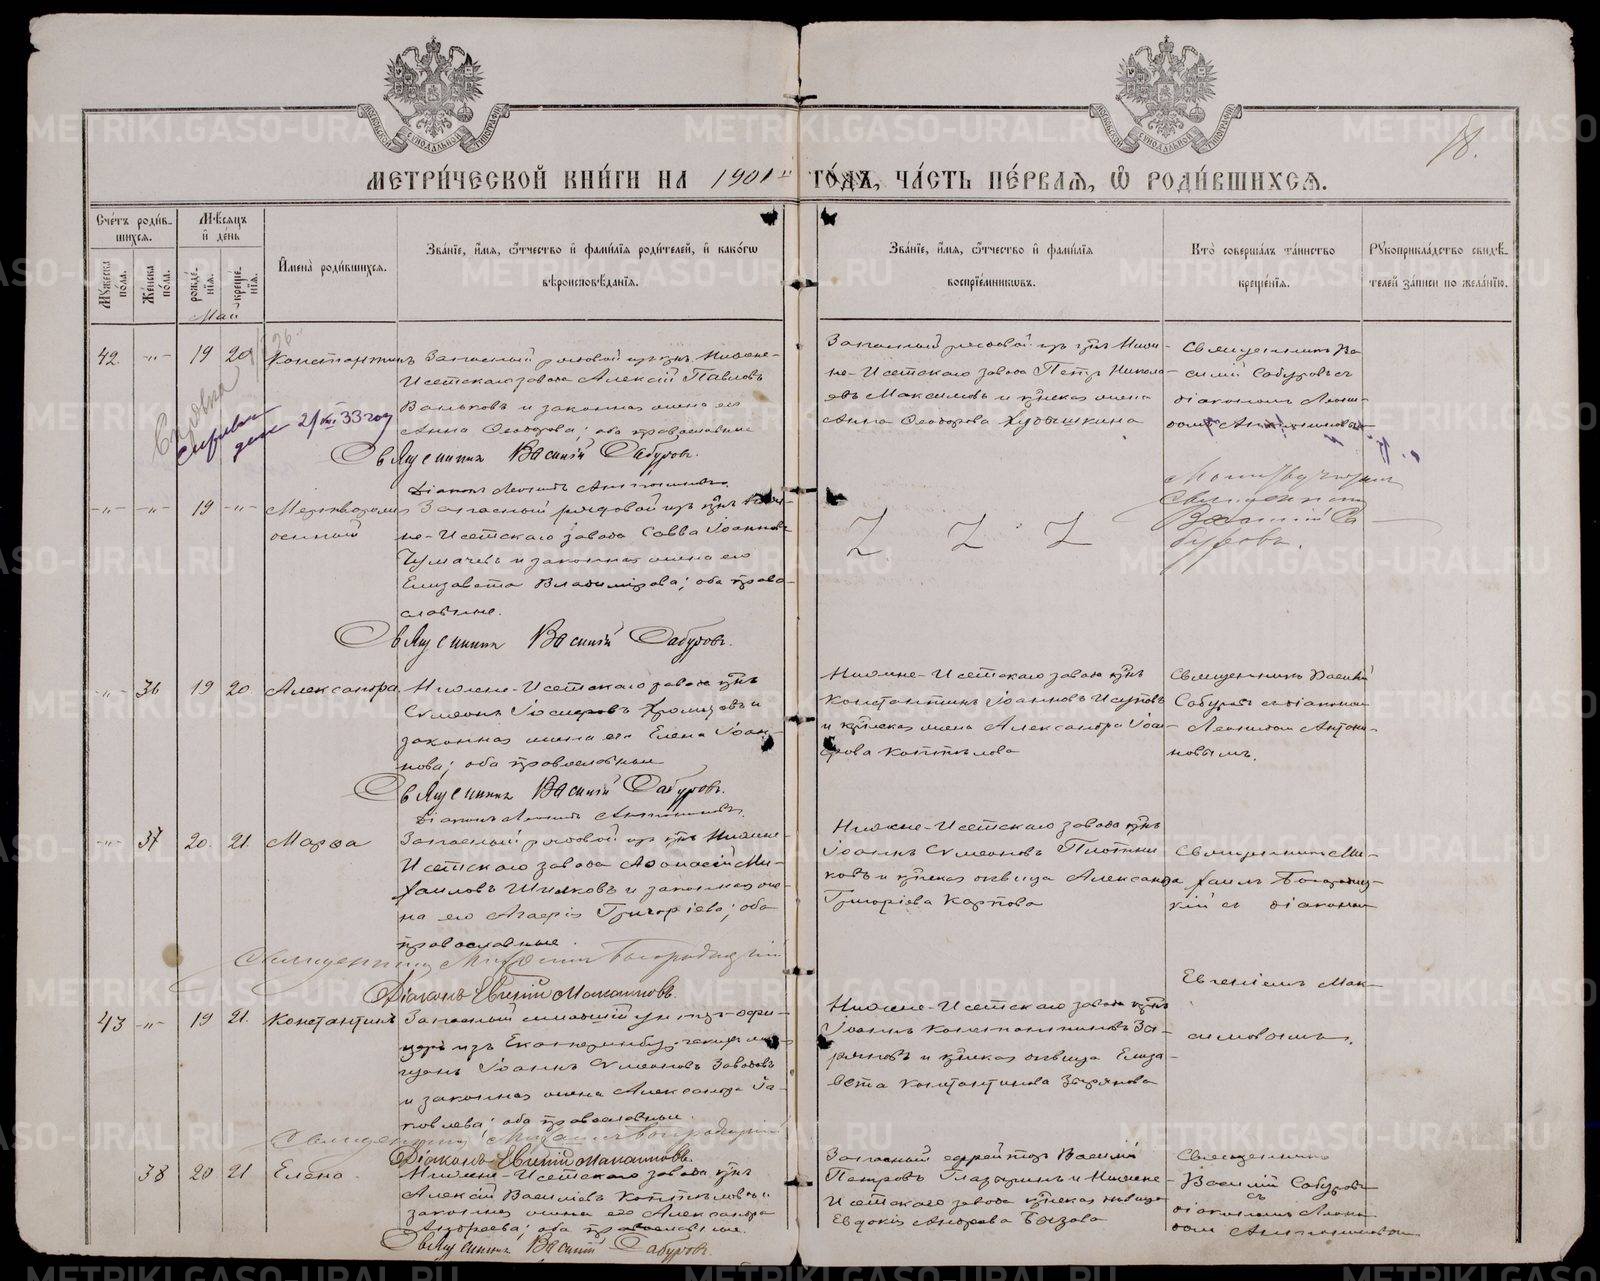 МЕТРИ́ЧЕСКОЙ КНИ́ГИ НА 1901-й ГО́ДЪ, ЧА́СТЬ ПЕ́РВАЯ, Ѿ РОДИ́ВШИХСЯ.
18.
Сче́тъ роди́в-
шихся.
Му́жеска по́ла.
Же́нска по́ла.
Мѣсяцъ и де́нь
рожде́нія.
креще́нія.
Май
Имена̀ роди́вшихся.
Зва́ніе, и́мя, о́тчество и фами́лія роди́телей, и како́гѡ
вѣроисповѣ́данія.
Зва́ніе, и́мя, о́тчество и фами́лія
воспріе́мниковъ.
Кто̀ соверша́лъ та́инство
креще́нія.
Рукоприкла́дство свидѣ́-
телей за́писи по жела́нію.
42. -„- 19 20 Константинъ
Запасный рядовой изъ кр. Нижне-
Исетскаго завода Алексій Павловъ
Ваньковъ и законная жена его
Анна Ѳеодорова; оба православные
Священникъ Василій Сабуровъ.
Діаконъ Леонидъ Антониновъ.
Запасный рядовой изъ кр. Ниж-
не-Исетскаго завода Петръ Никола-
евъ Максимовъ и крѣская жена
Анна Ѳеодорова Худышкина
Священникъ Ва-
силій Сабуровъ съ
діакономъ Леони-
домъ Антониновымъ
-„- -„- 19 -„- Мертворожд-
енный
Запасный рядовой изъ кр. Ниж-
не-Исетскаго завода Савва Іоанновъ
Чумачевъ и законная жена его
Елизавета Владимірова; оба право-
славные.
Священникъ Василій Сабуровъ.
Священникъ
Василій Са-
буровъ.
-„- 36 19 20. Александра
Нижне-Исетскаго завода кр.
Сѵмеонъ Іосифовъ и
законная жена его Елена Іоан-
нова; оба православные
Священникъ Василій Сабуровъ.
Діаконъ Леонидъ Антониновъ.
Нижне-Исетскаго завода кр.
Константинъ Іоанновъ Исуповъ
и крѣская жена Александра
Коптѣлова
Священникъ Василій
Сабуровъ съ діакономъ
Леонидомъ Антони-
новымъ.
-„- 37 20. 21. Марѳа
Запасный рядовой изъ кр. Нижне-
Исетскаго завода Аѳанасій Ми-
хаиловъ и законная же-
на его Григоріева; оба
православные.
Священникъ Михаилъ Богородицкій
Діаконъ Евгеній Максимовъ.
Нижне-Исетскаго завода кр.
Іоаннъ Сѵмеоновъ Плотни-
ковъ и крѣская дѣвица Александра
Григоріева Карпова
Священникъ Ми-
хаилъ Богородиц-
кій съ діакономъ
Евгеніемъ Мак-
симовымъ.
43 -„- 19 21. Константинъ
Запасный младшій унтеръ-офи-
церъ изъ Екатеринбургскихъ мѣ-
щанъ Іоаннъ Сѵмеоновъ Заводовъ
и законная жена Александра Іа-
ковлева; оба православные.
Священникъ Михаилъ Богородицкій
Діаконъ Евгеній Максимовъ.
Нижне-Исетскаго завода кр.
Іоаннъ Константиновъ Зы-
ряновъ и крѣская дѣвица Елиза-
вета Константинова Зырянова
38 20 21 Елена.
Нижне-Исетскаго завода кр.
Алексій Василіевъ Коптѣловъ и
законная жена его Александра
Андреева; оба православные.
Священникъ Василій Сабуровъ.
Запасный ефрейторъ Василій
Петровъ и Нижне-
Исетскаго завода крѣская дѣвица
Евдокія Андреева
Священникъ
Василій Сабуровъ
съ
діакономъ Леони-
домъ Антониновымъ
METRIKI.GASO-URAL.RU